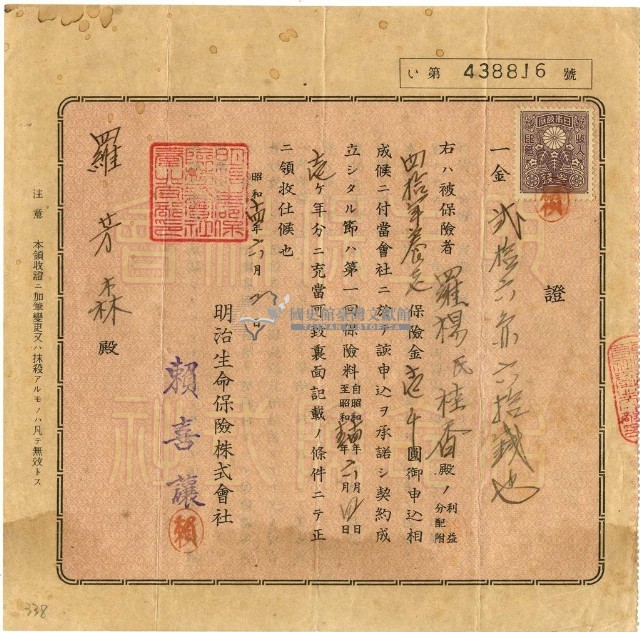 い第 438816 號
證
一金 貳拾六圓六拾錢也
右ハ被保險者 羅楊氏桂香 殿ノ 利益分配附
四拾年養老 保險金壱千圓御申込相
成候ニ付當會社ニ於テ該申込ヲ承諾シ契約成
立シタル節ハ第一回保險料 自昭和 年六月 日 至昭和 年六月 日
壱ケ年分ニ充當可致裏面記載ノ條件ニテ正
ニ領收仕候也
昭和十四年六月 日
明治生命保險株式會社
賴喜讓
賴
羅芳森 殿
注意 本領收證ニ加筆變更又ハ抹殺アルモノハ凡テ無效トス
國史館臺灣文獻館
338